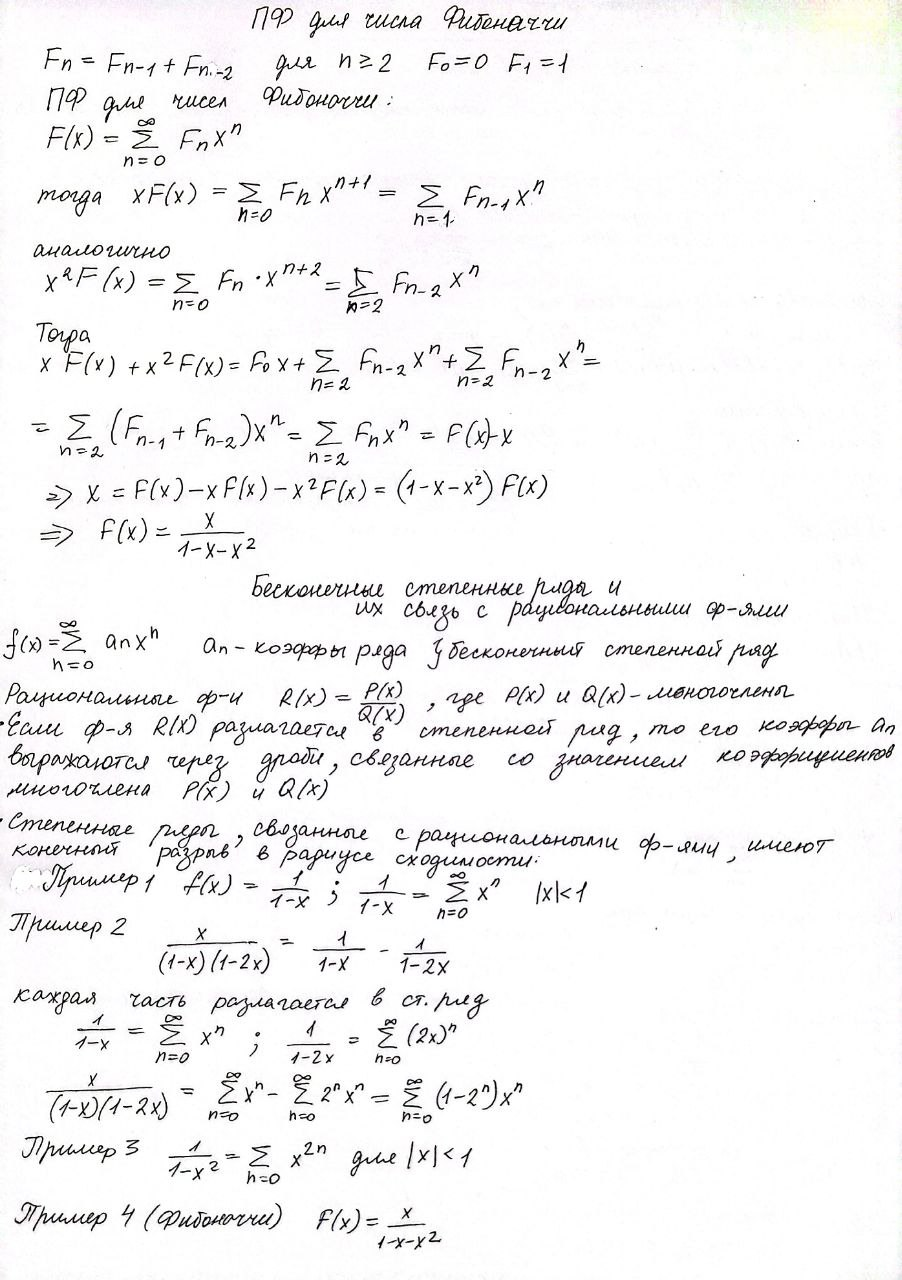 ПФ для числа Фибоначчи
Fn = Fn-1 + Fn-2 для n ≥ 2 F₀ = 0 F₁ = 1
ПФ для чисел Фибоначчи:
F(x) = ∑_{n=0}^{∞} Fn xⁿ
тогда xF(x) = ∑_{n=0} Fn x^{n+1} = ∑_{n=1} Fn-1 xⁿ
аналогично
x²F(x) = ∑_{n=0} Fn · x^{n+2} = ∑_{n=2} Fn-2 xⁿ
Тогда
x F(x) + x²F(x) = F₀ x + ∑_{n=2} Fn-2 xⁿ + ∑_{n=2} Fn-2 xⁿ =
= ∑_{n=2} (Fn-1 + Fn-2)xⁿ = ∑_{n=2} Fn xⁿ = F(x)-x
=> x = F(x) - xF(x) - x²F(x) = (1-x-x²) F(x)
=> F(x) = x/(1-x-x²)
Бесконечные степенные ряды и
их связь с рациональными ф-ями
f(x) = ∑_{n=0}^{∞} an xⁿ an - коэффы ряда } бесконечный степенной ряд
Рациональные ф-и R(x) = P(x)/Q(x) , где P(x) и Q(x) - многочлены
• Если ф-я R(x) разлагается в степенной ряд, то его коэффы an
выражаются через дроби, связанные со значением коэффициентов
многочлена P(x) и Q(x)
• Степенные ряды, связанные с рациональными ф-ями, имеют
конечный разрыв в радиусе сходимости:
Пример 1 f(x) = 1/(1-x) ; 1/(1-x) = ∑_{n=0}^{∞} xⁿ |x|<1
Пример 2 x/((1-x)(1-2x)) = 1/(1-x) - 1/(1-2x)
каждая часть разлагается в ст. ряд
1/(1-x) = ∑_{n=0}^{∞} xⁿ ; 1/(1-2x) = ∑_{n=0}^{∞} (2x)ⁿ
x/((1-x)(1-2x)) = ∑_{n=0}^{∞} xⁿ - ∑_{n=0}^{∞} 2ⁿ xⁿ = ∑_{n=0}^{∞} (1-2ⁿ)xⁿ
Пример 3 1/(1-x²) = ∑_{n=0} x^{2n} для |x| < 1
Пример 4 (Фибоначчи) F(x) = x/(1-x-x²)